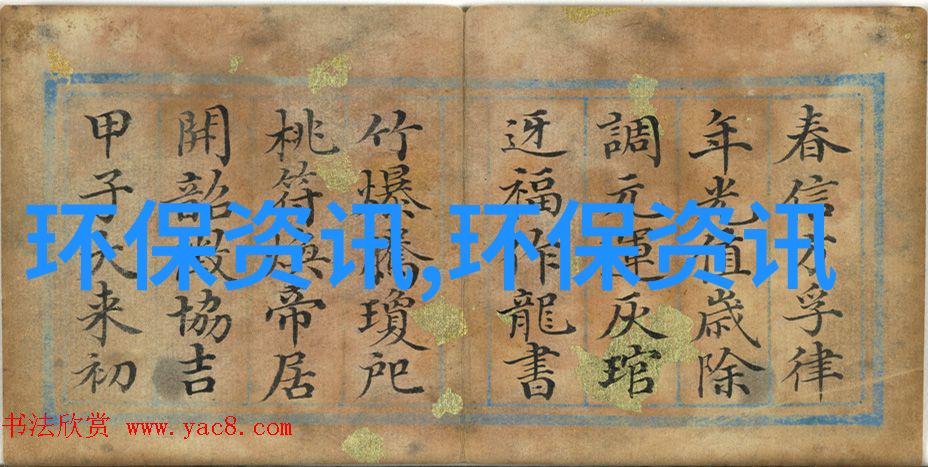 春信方孚律
年光值歲除
調元運灰琯
迓福作龍書
竹爆瓊戺
桃符煥帝居
開韶協吉
甲子来初
环保资讯,环保资讯
书法欣赏 www.yac8.com